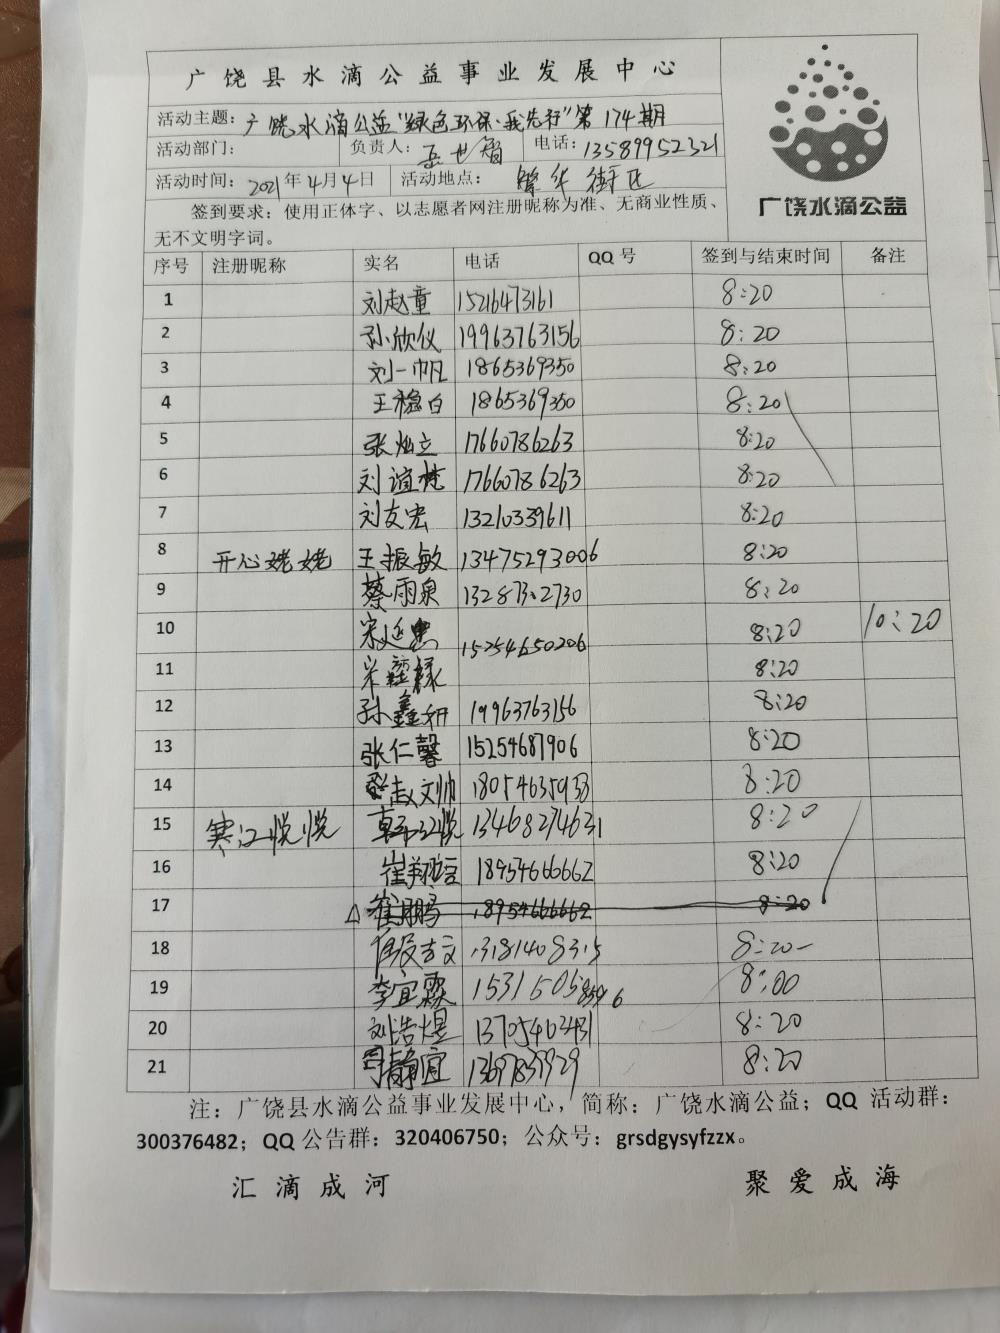 广饶县水滴公益事业发展中心
活动主题：广饶水滴公益"绿色环保·我先行"第174期
活动部门： 负责人：岳世智 电话：13589952321
活动时间：2021年4月4日 活动地点：繁华街区
签到要求：使用正体字、以志愿者网注册昵称为准、无商业性质、
无不文明字词。
广饶水滴公益
序号 注册昵称 实名 电话 QQ号 签到与结束时间 备注
1 刘赵童 15216473161 8:20
2 孙欣仪 19963763156 8:20
3 刘一帆 1865369350 8:20
4 王稳白 1865369350 8:20
5 张灿立 17660786263 8:20
6 刘谊梵 17660786263 8:20
7 刘友宏 13210339611 8:20
8 开心姥姥 王振敏 13475293006 8:20
9 蔡雨泉 13287302730 8:20
10 宋延忠 15254650206 8:20 10:20
11 宋 8:20
12 孙鑫妍 19963763156 8:20
13 张仁馨 15254687906 8:20
14 赵文帅 18054635938 8:20
15 寒江悦悦 13468274631 8:20
16 崔翔 18954666662 8:20
17 崔鹏 18954666662 8:20
18 13181408315 8:20
19 李宜霖 15315058596 8:00
20 刘浩煜 13705463431 8:20
21 司静宜 13697839929 8:20
注：广饶县水滴公益事业发展中心，简称：广饶水滴公益；QQ 活动群：
300376482；QQ公告群：320406750；公众号：grsdgysyfzzx。
汇滴成河 聚爱成海